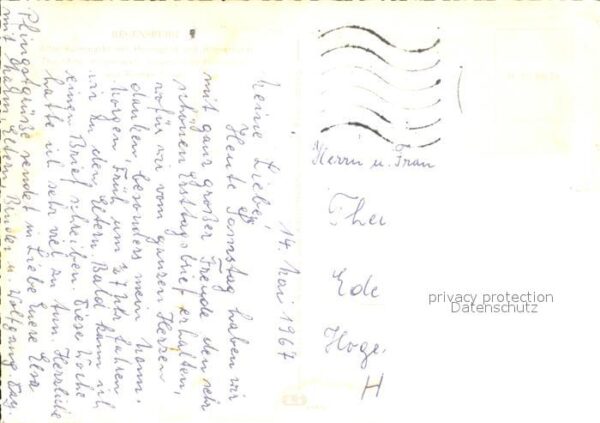 REGENSBURG
14. Mai 1967
Meine Lieben,
Heute Samstag haben wir
mit ganz großer Freude den sehr
schönen Ersttagsbrief erhalten,
wofür wir vom ganzen Herzen
danken besonders mein Mann.
Morgen Früh um 7 Uhr fahren
wir zu den Eltern. Bald kann ich
einen Brief schreiben. Diese Woche
hatte ich sehr viel zu tun. Herzliche
Pfingstgrüße sendet in Liebe Euere Elsa
mit Mann, Eltern, Bruder u. Wolfgang
Herrn u. Frau
Thei
Ede
Hoge
H
privacy protection
Datenschutz